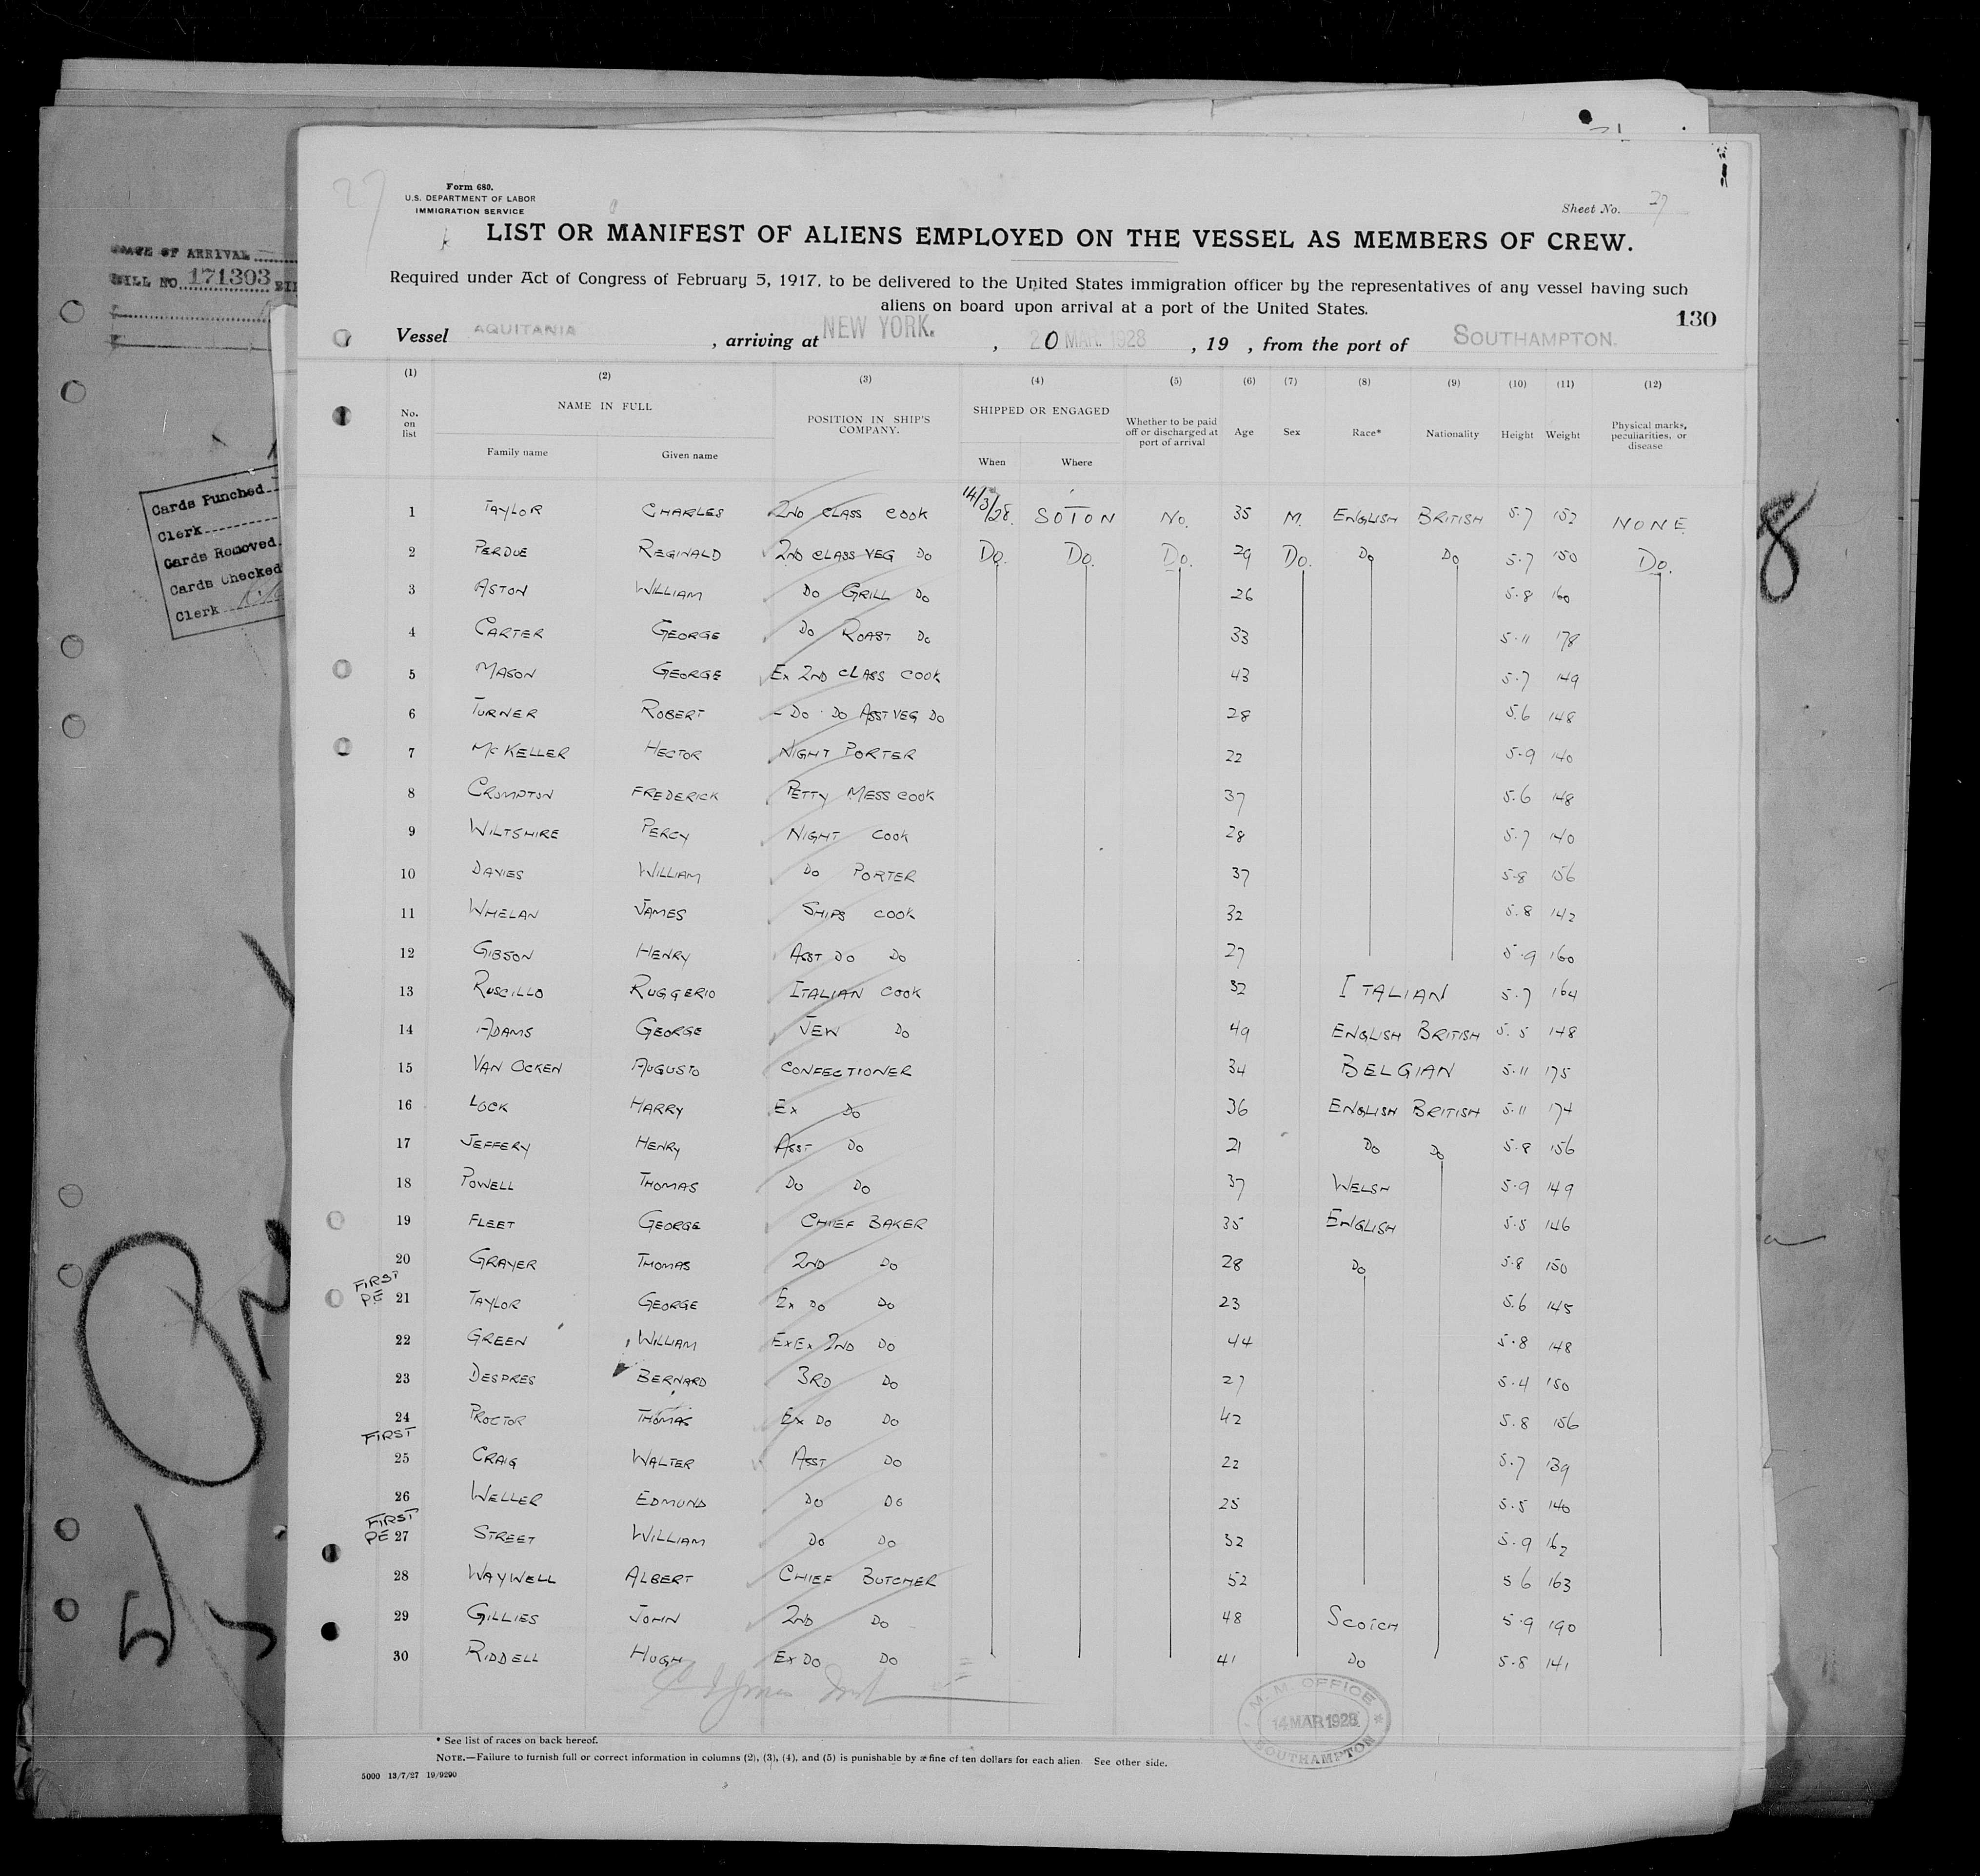 27
Form 680.
U.S. DEPARTMENT OF LABOR
IMMIGRATION SERVICE
Sheet No. 27
LIST OR MANIFEST OF ALIENS EMPLOYED ON THE VESSEL AS MEMBERS OF CREW.
Required under Act of Congress of February 5, 1917, to be delivered to the United States immigration officer by the representatives of any vessel having such
aliens on board upon arrival at a port of the United States.
130
Vessel AQUITANIA , arriving at NEW YORK. , 20 MAR. 1928 , 19 , from the port of SOUTHAMPTON.
(1) (2) (3) (4) (5) (6) (7) (8) (9) (10) (11) (12)
No. on list NAME IN FULL POSITION IN SHIP'S COMPANY. SHIPPED OR ENGAGED Whether to be paid off or discharged at port of arrival Age Sex Race* Nationality Height Weight Physical marks, peculiarities, or disease
Family name Given name When Where
1 TAYLOR CHARLES 2ND CLASS COOK 14/3/28. SOTON No. 35 M. ENGLISH BRITISH 5.7 152 NONE
2 PERDUE REGINALD 2ND CLASS VEG DO Do. Do. Do. 29 Do. Do Do 5.7 150 Do.
3 ASTON WILLIAM DO GRILL DO 26 5.8 160
4 CARTER GEORGE DO ROAST DO 33 5.11 178
5 MASON GEORGE EX 2ND CLASS COOK 43 5.7 149
6 TURNER ROBERT - DO DO ASST VEG DO 28 5.6 148
7 McKELLER HECTOR NIGHT PORTER 22 5.9 140
8 CROMPTON FREDERICK PETTY MESS COOK 37 5.6 148
9 WILTSHIRE PERCY NIGHT COOK 28 5.7 140
10 DAVIES WILLIAM DO PORTER 37 5.8 156
11 WHELAN JAMES SHIPS COOK 32 5.8 142
12 GIBSON HENRY ASST DO DO 27 5.9 160
13 RUSCILLO RUGGERIO ITALIAN COOK 32 ITALIAN 5.7 164
14 ADAMS GEORGE JEW DO 49 ENGLISH BRITISH 5.5 148
15 VAN OCKEN AUGUSTO CONFECTIONER 34 BELGIAN 5.11 175
16 LOCK HARRY EX DO 36 ENGLISH BRITISH 5.11 174
17 JEFFERY HENRY ASST DO 21 DO DO 5.8 156
18 POWELL THOMAS DO DO 37 WELSH 5.9 149
19 FLEET GEORGE CHIEF BAKER 35 ENGLISH 5.5 146
20 GRAYER THOMAS 2ND DO 28 DO 5.8 150
FIRST PE 21 TAYLOR GEORGE EX DO DO 23 5.6 145
22 GREEN WILLIAM EX EX 2ND DO 44 5.8 148
23 DESPRES BERNARD 3RD DO 27 5.4 150
24 PROCTOR THOMAS EX DO DO 42 5.8 156
FIRST
25 CRAIG WALTER ASST DO 22 5.7 139
26 WELLER EDMUND DO DO 25 5.5 140
FIRST PE 27 STREET WILLIAM DO DO 32 5.9 162
28 WAYWELL ALBERT CHIEF BUTCHER 52 5 6 163
29 GILLIES JOHN 2ND DO 48 SCOTCH 5.9 190
30 RIDDELL HUGH EX DO DO 41 DO 5.8 141
M. M. OFFICE
14 MAR 1928
SOUTHAMPTON
* See list of races on back hereof.
NOTE.—Failure to furnish full or correct information in columns (2), (3), (4), and (5) is punishable by a fine of ten dollars for each alien. See other side.
5000 13/7/27 19/9290
OF ARRIVAL
BILL NO. 171303
Cards Punched
Clerk
Cards Removed
Cards Checked
Clerk
8